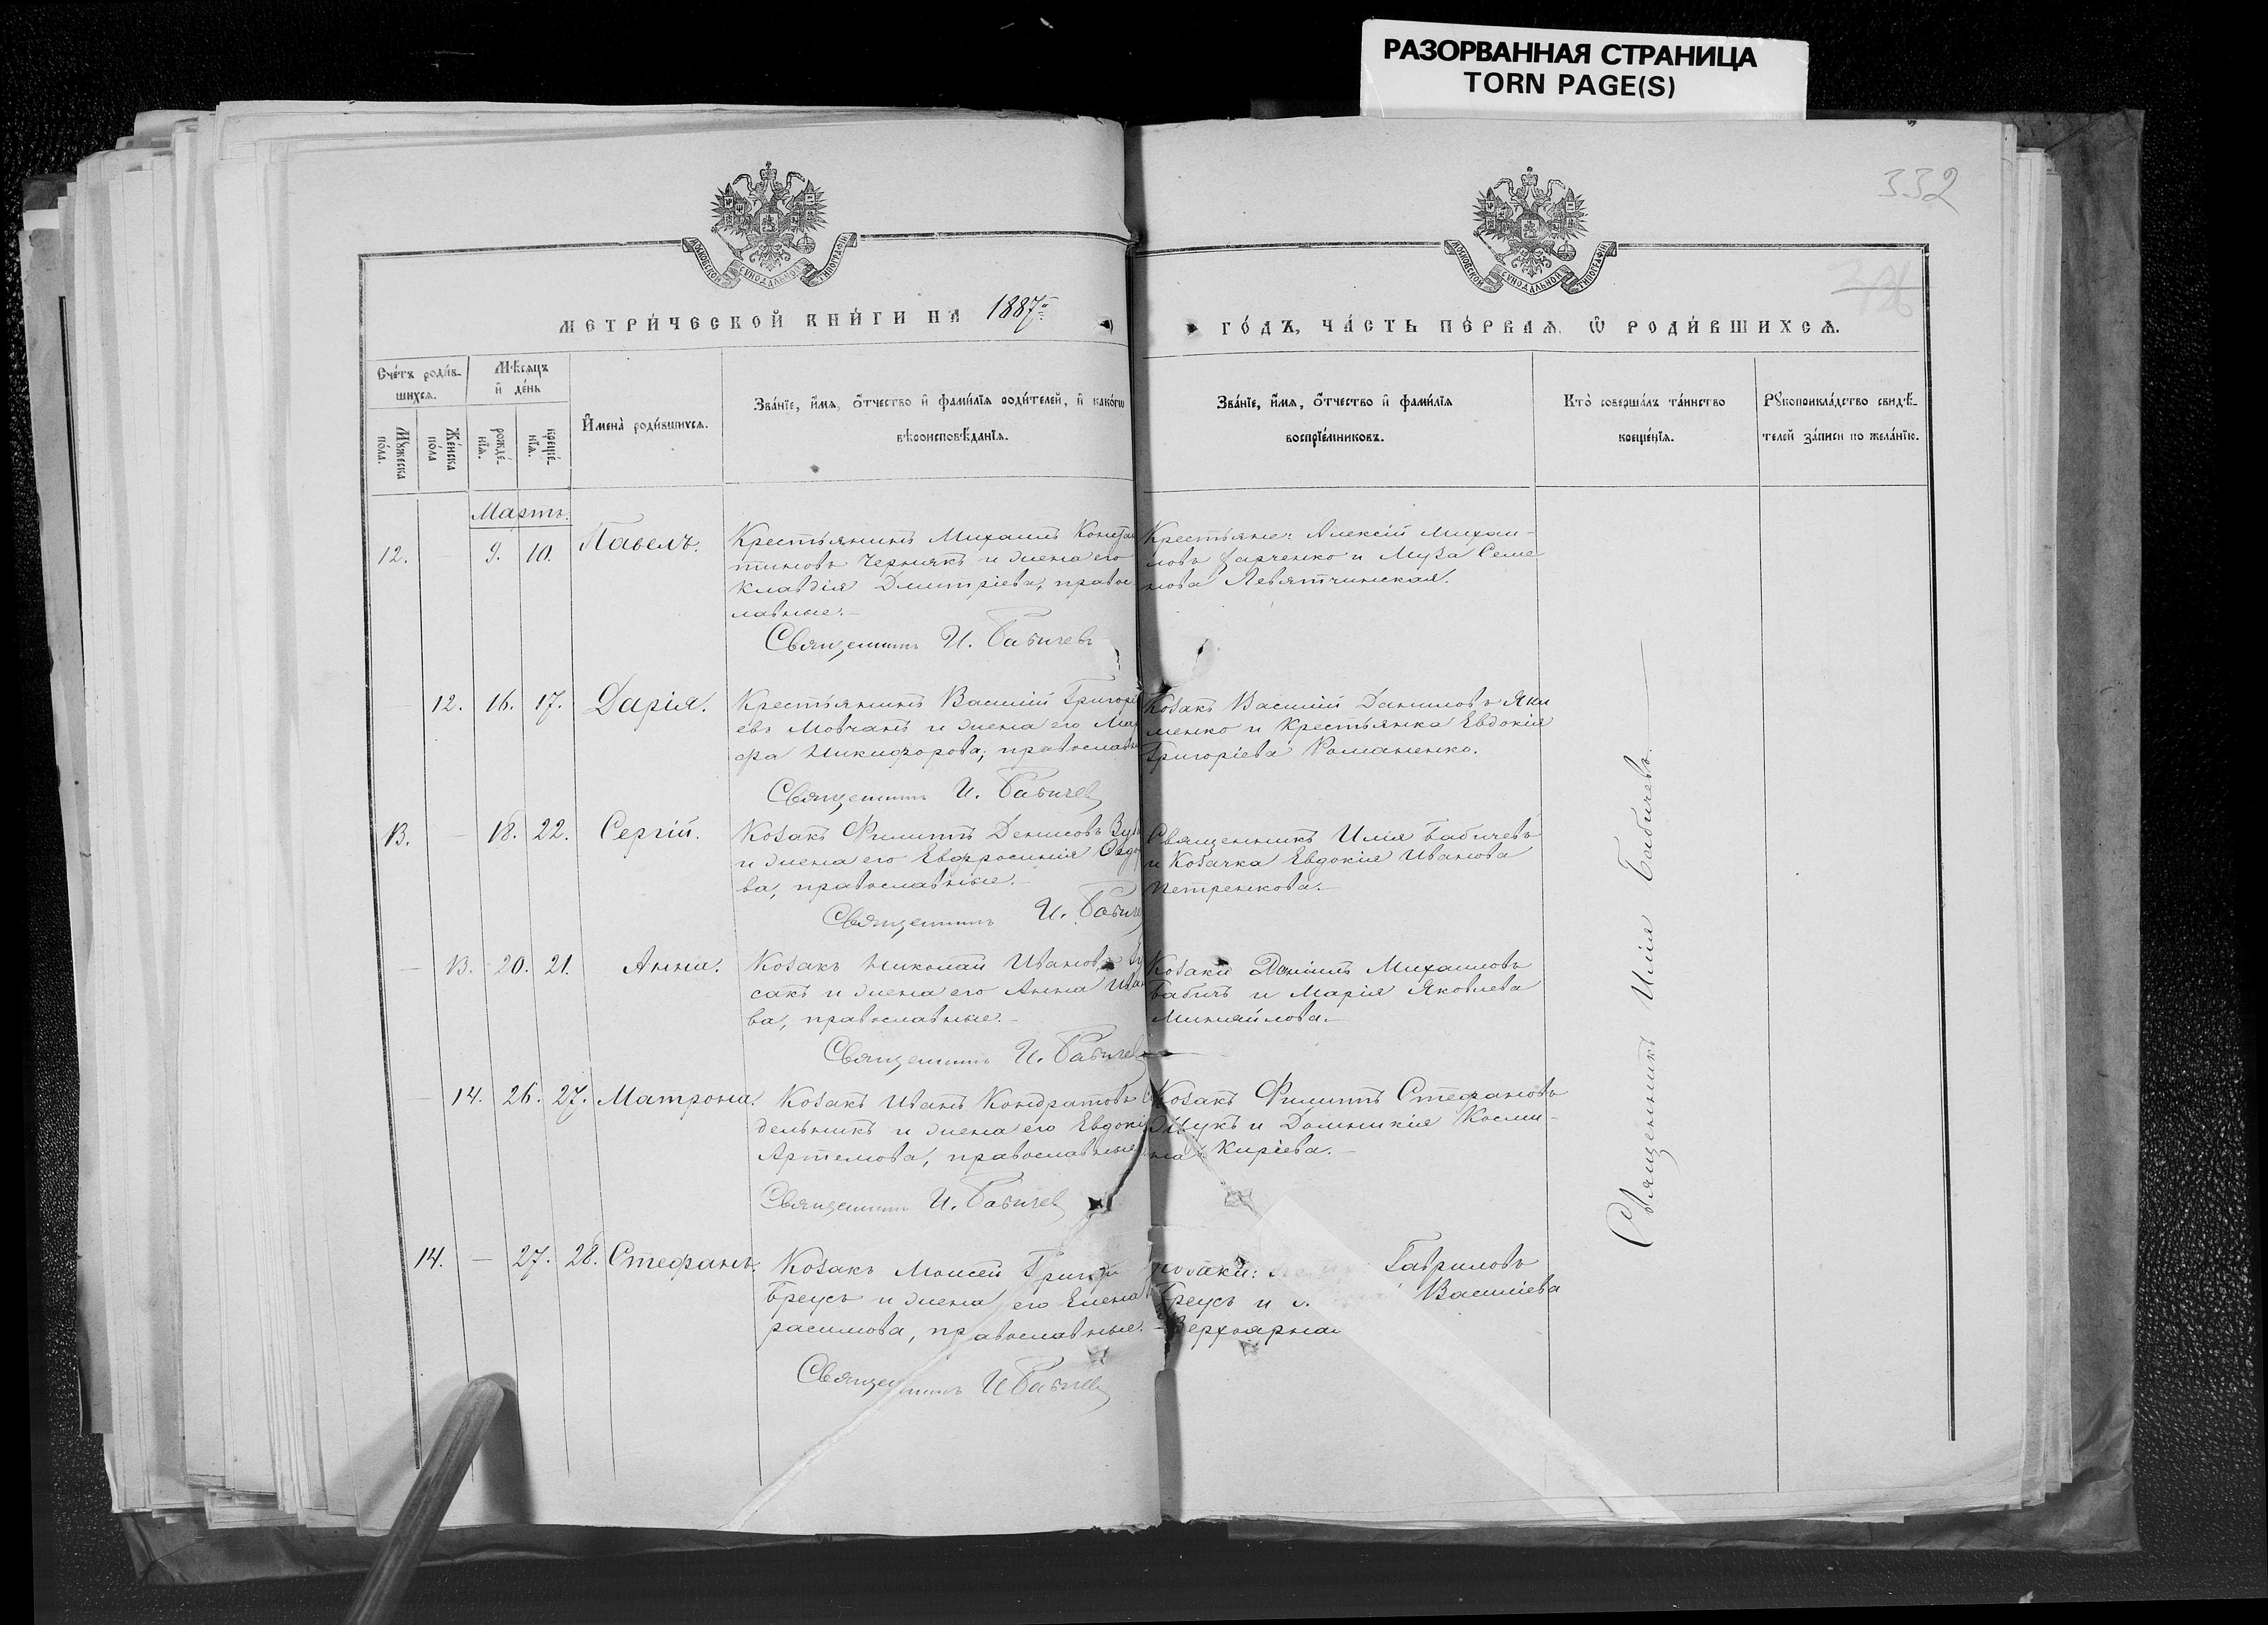 РАЗОРВАННАЯ СТРАНИЦА
TORN PAGE(S)
332
МОСКОВСКОЙ СѴНОДАЛЬНОЙ ТИПОГРАФІИ
МОСКОВСКОЙ СѴНОДАЛЬНОЙ ТИПОГРАФІИ
МЕТРИ́ЧЕСКОЙ КНИ́ГИ НА 1887й
ГО́ДЪ, ЧА́СТЬ ПЕ́РВАѦ, Ѽ РОДИ́ВШИХСѦ.
Сче́тъ роди́в-
шихсѧ.
Мꙋжеска по́ла.
Же́нска по́ла
Мѣ́сѧцъ и҆ де́нь
рожде́-нїѧ.
креще́-нїѧ.
И҆мена̀ роди́вшихсѧ.
Зва́нїе, и҆́мѧ, ѻ҆́тчество и҆ фами́лїѧ роди́телей, и҆ како́гѡ
вѣроисповѣ́данїѧ.
Зва́нїе, и҆́мѧ, ѻ҆́тчество и҆ фами́лїѧ
воспрїе́мниковъ.
Кто̀ соверша́лъ та́инство
креще́нїѧ.
Рꙋкоприкла́дство свидѣ́-
телей за́писи по жела́нїю.
Мартъ.
12. 9. 10. Павелъ.
Крестьянинъ Михаилъ Конста
тиновъ Чернякъ и жена его
Клавдія Дмитріева, право
лавные.
Священникъ И. Бабичевъ
Крестьяне: Алексій Михаи-
ловъ Харченко и Муза Семе
нова Левятчинская.
12. 16. 17. Дарія.
Крестьянинъ Василій Григорі
евъ Мовчанъ и жена его Мар
фа Никифорова, православн
Священникъ И. Бабичев
Козакъ Василій Даниловъ Яки
менко и крестьянка Евдокія
Григоріева Романенко.
13. — 18. 22. Сергій.
Козакъ Филиппъ Денисовъ
и жена его Евфросинія
ва, православные.
Священникъ И. Бабиче
Священникъ Илія Бабичевъ
и Козачка Евдокія Иванова
Петренкова.
— 13. 20. 21. Анна.
Козакъ Николай Ивановъ
сакъ и жена его Анна Ива
ва, православные.
Священникъ И. Бабичев
Козаки Даніилъ Михаиловъ
Бабичъ и Марія Яковлева
Миняйлова.
— 14. 26. 27. Матрона.
Козакъ Иванъ Кондратовъ
дельникъ и жена его Евдокі
Артемова, православные
Священникъ И. Бабичев
Козакъ Филиппъ Стефановъ
Жукъ и Домникія Косми-
на Киріева.
14. — 27. 28. Стефанъ.
Козакъ Моисей Григор
Бреусъ и жена его Елена
расимова, православные.
Священникъ И Бабичев
Козаки: Гавриловъ
Бреусъ и Василіева
Верхоярная
Священникъ Илія Бабичевъ